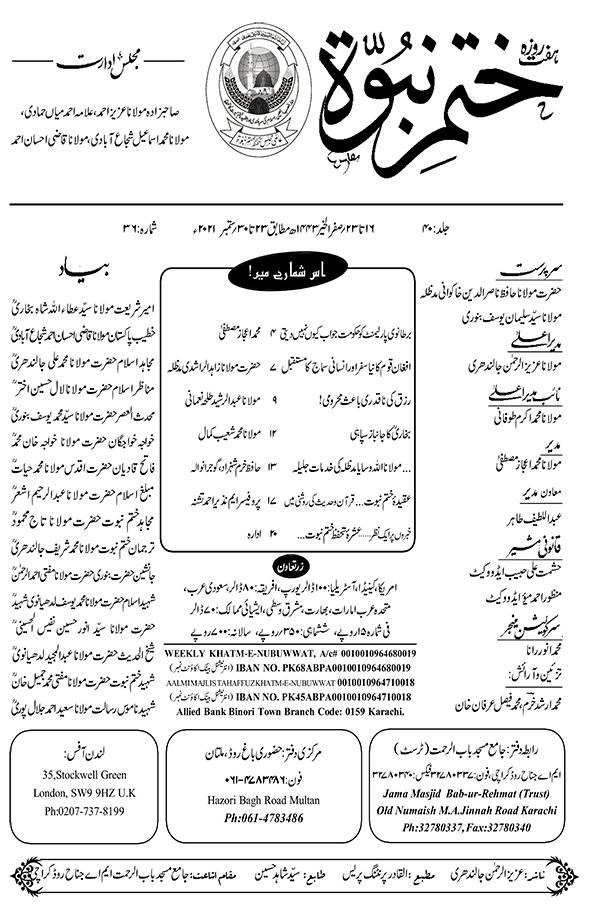 ہفت روزہ
ختم نبوۃ
مجلس ادارت
صاحبزادہ مولانا عزیز احمد، علامہ احمد میاں حمادی،
مولانا محمد اسماعیل شجاع آبادی، مولانا قاضی احسان احمد
جلد: ۴۰
۱۶ تا ۲۳ صفر الخیر ۱۴۴۳ھ مطابق ۲۳ تا ۳۰ ستمبر ۲۰۲۱ء
شمارہ: ۳۶
سرپرست
حضرت مولانا حافظ ناصر الدین خاکوانی مدظلہ
مولانا سید سلیمان یوسف بنوری
مدیر اعلیٰ
مولانا عزیز الرحمٰن جالندھری
نائب مدیر اعلیٰ
مولانا محمد اکرم طوفانی
مدیر
مولانا محمد اعجاز مصطفیٰ
معاون مدیر
عبداللطیف طاہر
قانونی مشیر
حشمت علی حبیب ایڈووکیٹ
منظور احمد میؤ ایڈووکیٹ
سرکولیشن منیجر
محمد انور رانا
تزئین و آرائش:
محمد ارشد خرم، محمد فیصل عرفان خان
اس شمارے میں!
برطانوی پارلیمنٹ کو حکومت جواب کیوں نہیں دیتی ۴ محمد اعجاز مصطفیٰ
افغان قوم کا نیا سفر اور انسانی سماج کا مستقبل ۷ حضرت مولانا زاہد الراشدی مدظلہ
رزق کی ناقدری باعث محرومی! ۹ مولانا عبدالرشید طلحہ نعمانی
بخاریؒ کا جانباز سپاہی ۱۲ مولانا محمد شعیب کمال
...مولانا اللہ وسایا مدظلہ کی خدمات جلیلہ ۱۳ حافظ خرم شہزاد، گوجرانوالہ
عقیدۂ ختم نبوت... قرآن و حدیث کی روشنی میں ۱۷ پروفیسر ایم نذیر احمد تشنہ
خبروں پر ایک نظر..... عشرۂ تحفظ ختم نبوت... ۲۰ ادارہ
زر تعاون
امریکا، کینیڈا، آسٹریلیا: ۱۰۰ ڈالر یورپ، افریقہ: ۸۰ ڈالر، سعودی عرب،
متحدہ عرب امارات، بھارت، مشرق وسطیٰ، ایشیائی ممالک: ۷۰ ڈالر
فی شمارہ ۱۵ روپے، ششماہی: ۳۵۰ روپے، سالانہ: ۷۰۰ روپے
WEEKLY KHATM-E-NUBUWWAT, A/c# 0010010964680019
IBAN NO. PK68ABPA0010010964680019 (انٹرنیشنل بینک اکاؤنٹ نمبر)
AALMIMAJLISTAHAFFUZKHATM-E-NUBUWWAT 0010010964710018
IBAN NO. PK45ABPA0010010964710018 (انٹرنیشنل بینک اکاؤنٹ نمبر)
Allied Bank Binori Town Branch Code: 0159 Karachi.
بیاد
امیر شریعت مولانا سید عطاء اللہ شاہ بخاریؒ
خطیب پاکستان مولانا قاضی احسان احمد شجاع آبادیؒ
مجاہد اسلام حضرت مولانا محمد علی جالندھریؒ
مناظر اسلام حضرت مولانا لال حسین اخترؒ
محدث العصر حضرت مولانا سید محمد یوسف بنوریؒ
خواجہ خواجگان حضرت مولانا خواجہ خان محمدؒ
فاتح قادیان حضرت اقدس مولانا محمد حیاتؒ
مبلغ اسلام حضرت مولانا عبدالرحیم اشعرؒ
مجاہد ختم نبوت حضرت مولانا تاج محمودؒ
ترجمان ختم نبوت مولانا محمد شریف جالندھریؒ
جانشین حضرت بنوری حضرت مولانا مفتی احمد الرحمٰنؒ
شہید اسلام حضرت مولانا محمد یوسف لدھیانوی شہیدؒ
حضرت مولانا سید انور حسین نفیس الحسینیؒ
شیخ الحدیث حضرت مولانا عبدالمجید لدھیانویؒ
شہید ختم نبوت حضرت مولانا مفتی محمد جمیل خانؒ
شہید ناموس رسالت مولانا سعید احمد جلال پوریؒ
رابطہ دفتر: جامع مسجد باب الرحمت (ٹرسٹ)
ایم اے جناح روڈ کراچی، فون: ۳۲۷۸۰۳۳۷ فیکس: ۳۲۷۸۰۳۴۰
Jama Masjid Bab-ur-Rehmat (Trust)
Old Numaish M.A.Jinnah Road Karachi
Ph:32780337, Fax:32780340
مرکزی دفتر: حضوری باغ روڈ، ملتان
فون: ۰۶۱-۴۷۸۳۴۸۶
Hazori Bagh Road Multan
Ph:061-4783486
لندن آفس:
35,Stockwell Green
London, SW9 9HZ U.K
Ph:0207-737-8199
ناشر: عزیز الرحمٰن جالندھری مطبع: القادر پرنٹنگ پریس طابع: سید شاہد حسین مقام اشاعت: جامع مسجد باب الرحمت ایم اے جناح روڈ کراچی